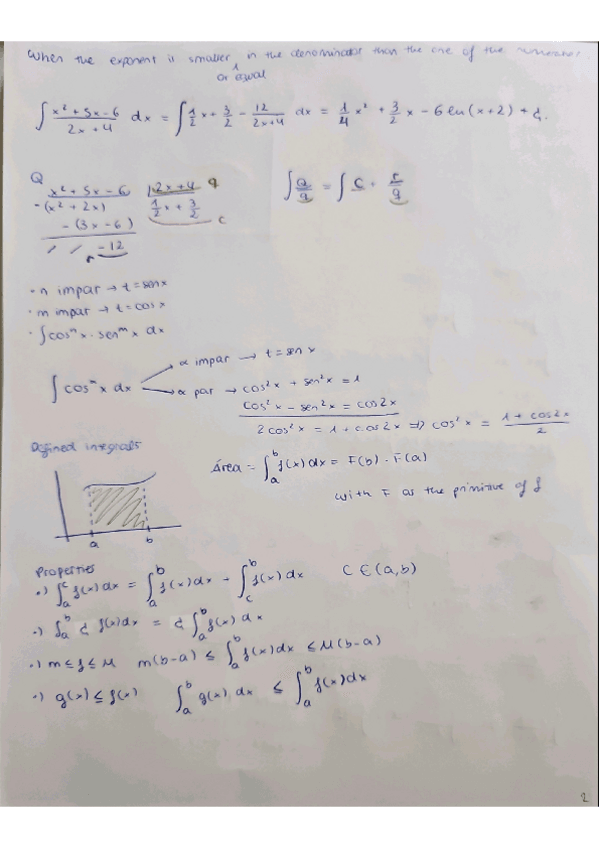 When the exponent is smaller or equal in the denominator than the one of the numerator.
∫ (x² + 5x - 6)/(2x + 4) dx = ∫ 1/2 x + 3/2 - 12/(2x+4) dx = 1/4 x² + 3/2 x - 6 ln(x+2) + C.
Q
x² + 5x - 6 | 2x + 4 q
- (x² + 2x) 1/2 x + 3/2 c
- (3x - 6)
/ / -12
r
∫ Q/q = ∫ C + r/q
· n impar → t = senx
· m impar → t = cosx
· ∫cosⁿx · senᵐx dx
∫ cosⁿx dx
α impar → t = sen x
α par → cos²x + sen²x = 1
cos²x - sen²x = cos2x
2cos²x = 1 + cos2x ⇒ cos²x = (1 + cos2x)/2
Defined integrals
Área = ∫ₐᵇ f(x)dx = F(b) - F(a)
with F as the primitive of f
a b
Properties
·) ∫ₐᶜ f(x)dx = ∫ₐᵇ f(x)dx + ∫꜀ᵇ f(x)dx C ∈ (a,b)
·) ∫ₐᵇ α f(x)dx = α ∫ₐᵇ f(x)dx
·) m ≤ f ≤ M m(b-a) ≤ ∫ₐᵇ f(x)dx ≤ M(b-a)
·) g(x) ≤ f(x) ∫ₐᵇ g(x) dx ≤ ∫ₐᵇ f(x)dx
2